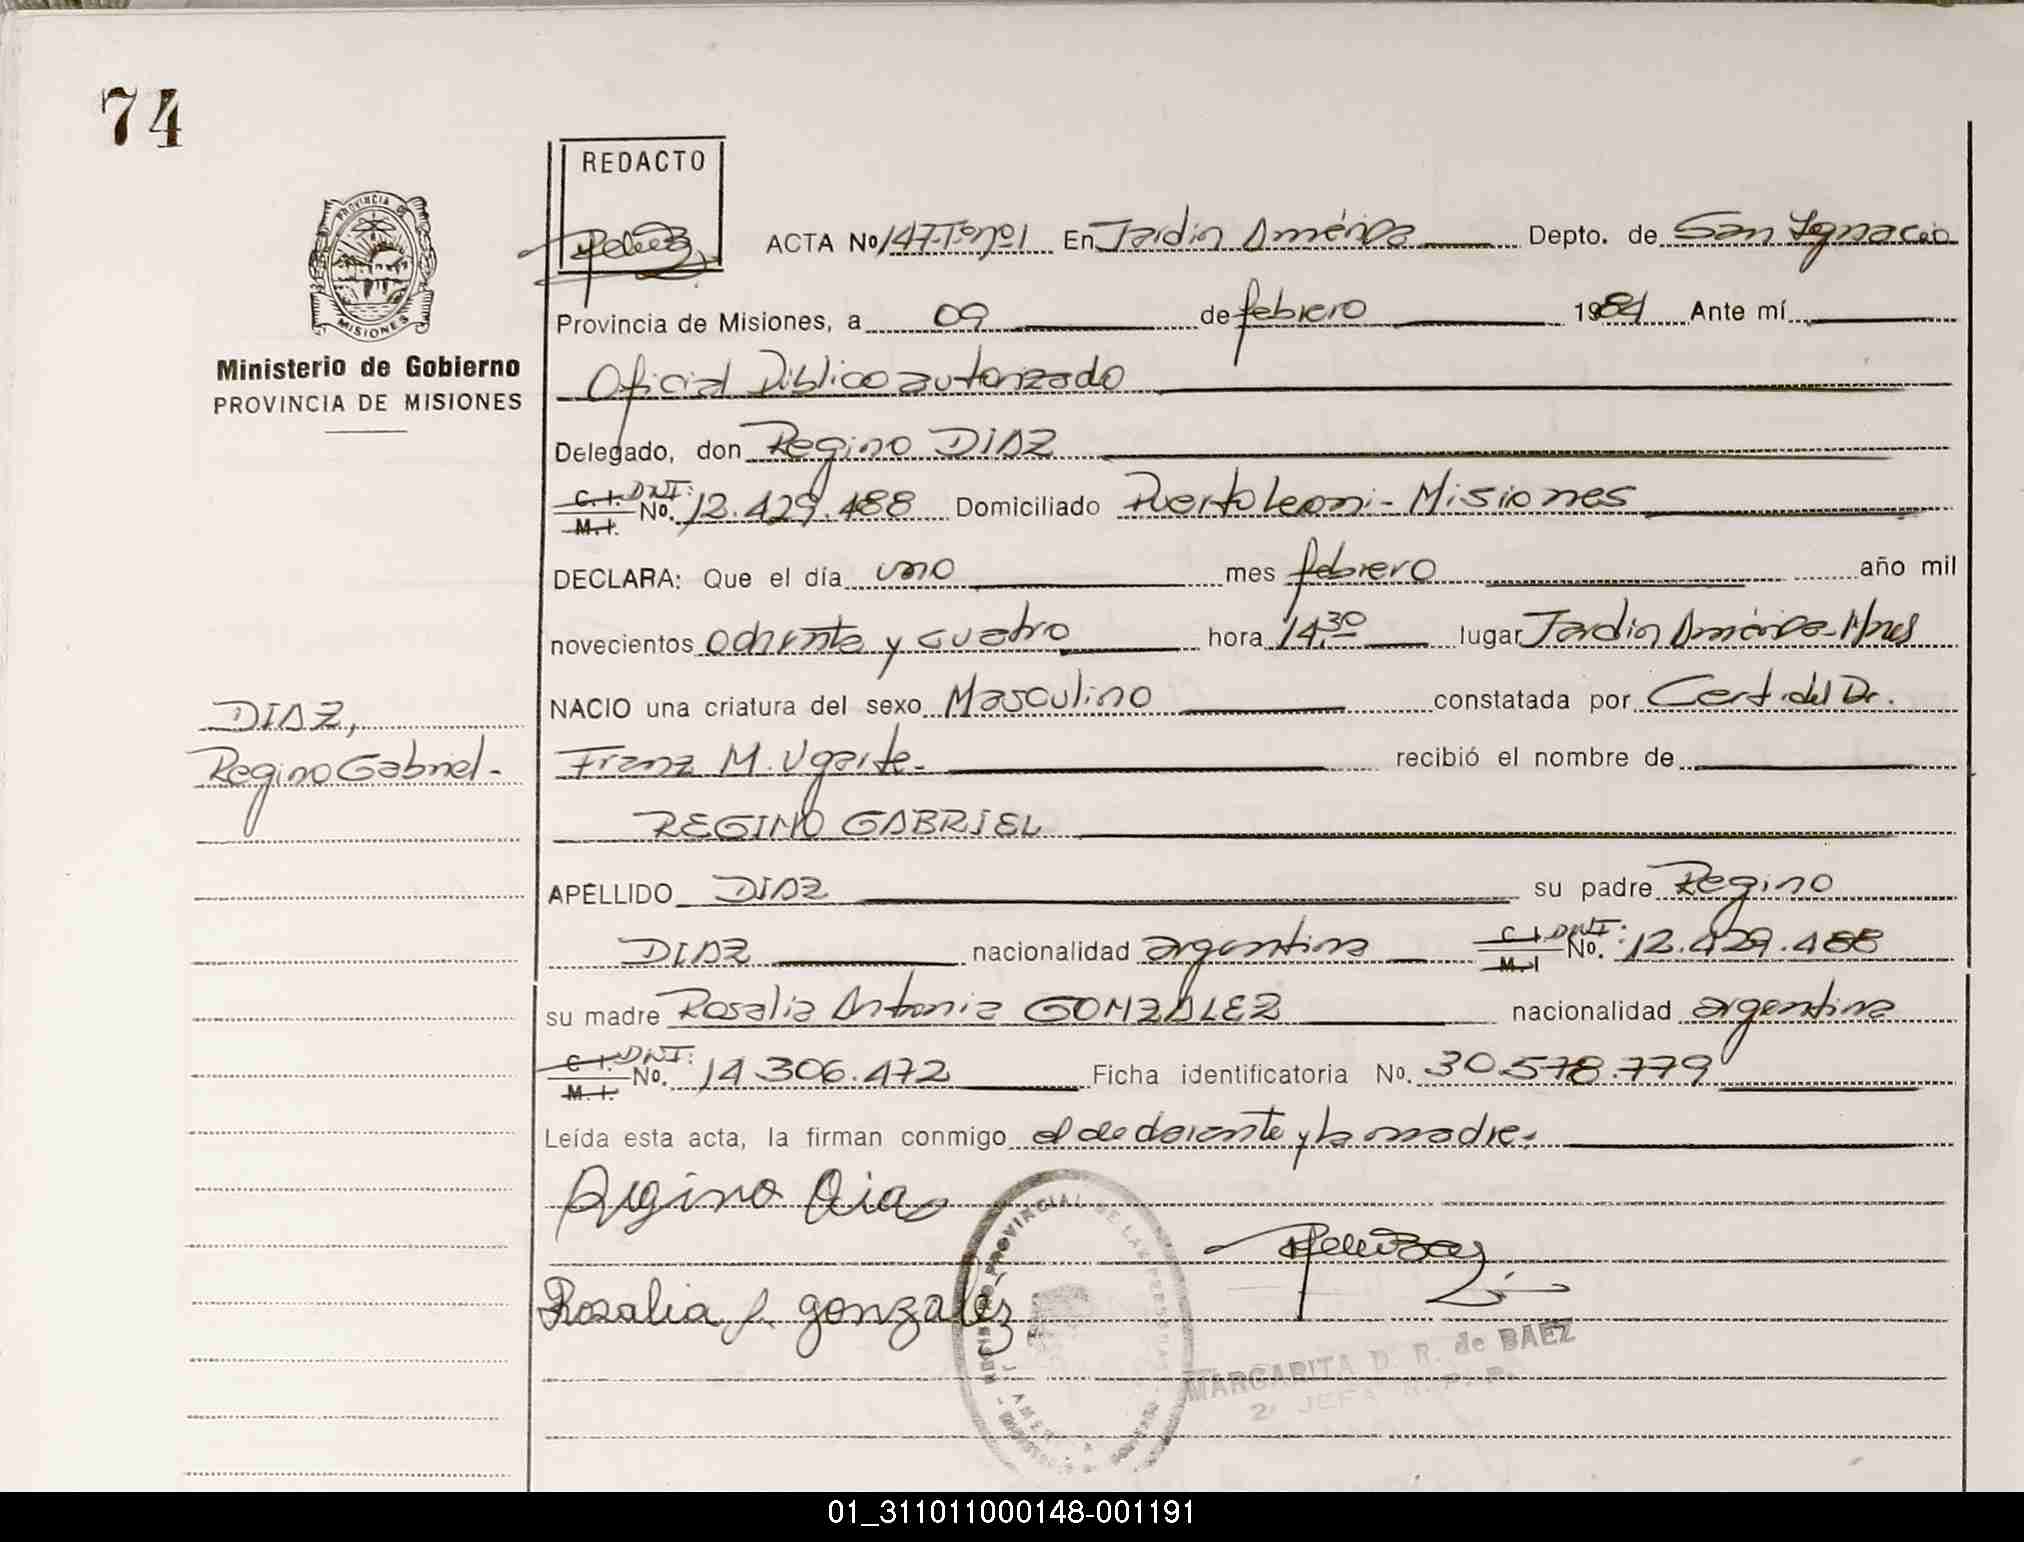 74
REDACTO
ACTA No 147-Tº nº 1 En Jardin América Depto. de San Ignacio
PROVINCIA DE
MISIONES
Provincia de Misiones, a 09 de febrero 1984 Ante mí
Ministerio de Gobierno
PROVINCIA DE MISIONES
Oficial Público autorizado
Delegado, don Regino DIAZ
C. I. DNI:
M. I. No. 12.429.488 Domiciliado Puerto Leoni - Misiones
DECLARA: Que el día uno mes febrero año mil
novecientos ochenta y cuatro hora 14.30 lugar Jardin América - Mnes
DIAZ,
Regino Gabriel-
NACIO una criatura del sexo Masculino constatada por Cert. del Dr.
Franz M. Ugarte- recibió el nombre de
REGINO GABRIEL
APELLIDO DIAZ su padre Regino
DIAZ nacionalidad argentina C. I. DNI: M. I No. 12.429.488
su madre Rosalia Antonia GONZALEZ nacionalidad argentina
C. I. DNI:
M. I. No. 14.306.472 Ficha identificatoria No. 30.578.779
Leída esta acta, la firman conmigo el declarante y la madre,
Regino Diaz
Rosalia A. gonzalez
REGISTRO PROVINCIAL DE LAS PERSONAS
MARGARITA D. R. de BAEZ
2ª JEFA R. P. P.
01_311011000148-001191